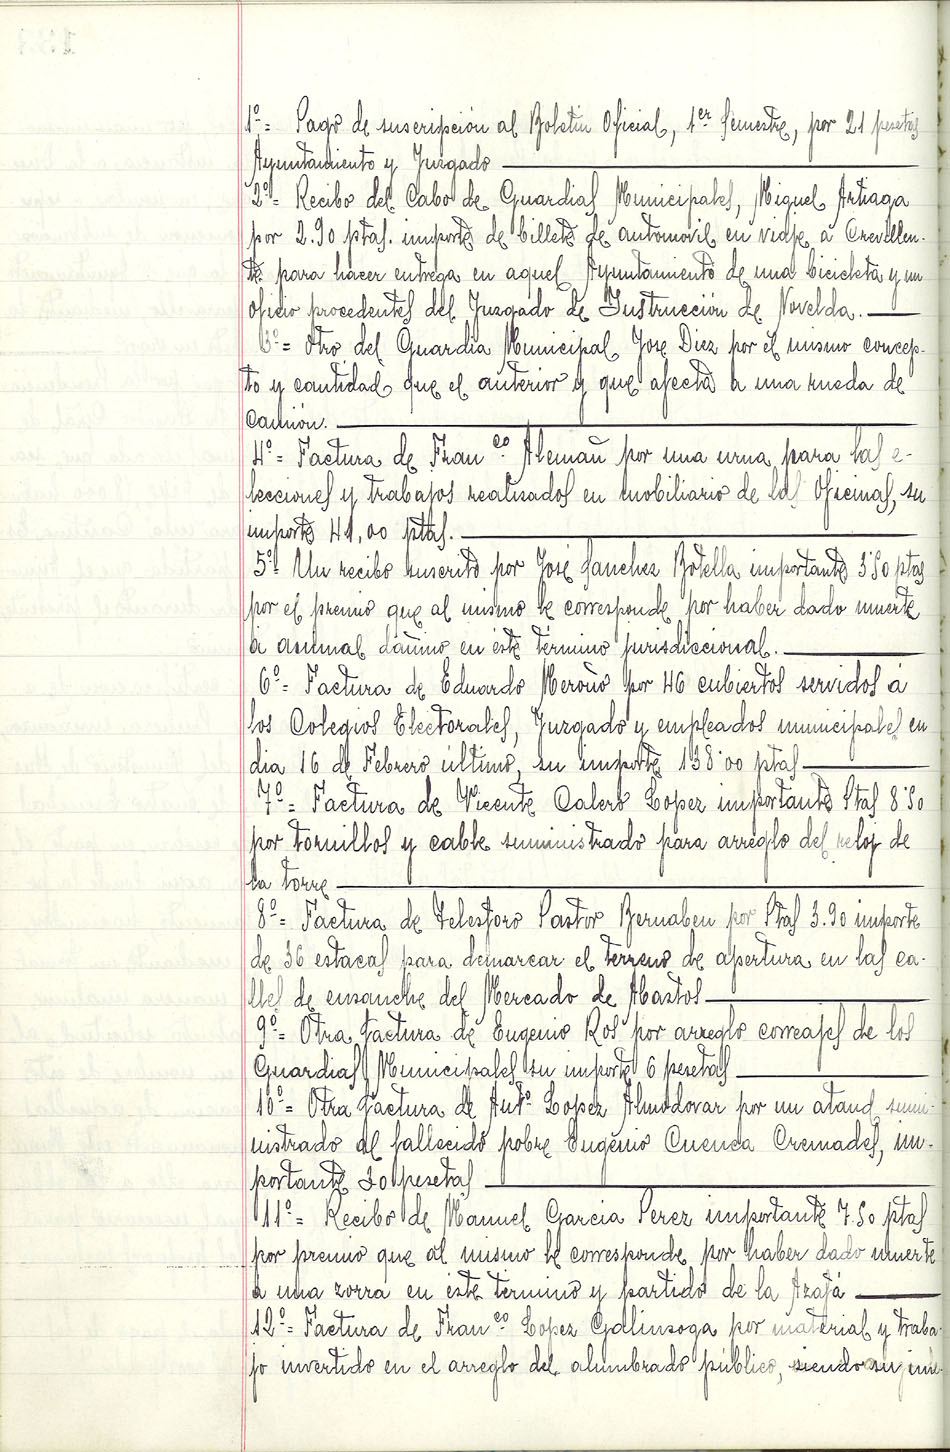 1º= Pago de suscripción al Boletin Oficial, 1er Semestre, por 21 pesetas
Ayuntamiento y Juzgado
2º= Recibo del Cabo de Guardias Municipales, Miguel Artiaga
por 2.90 ptas. importe de billete de automovil en viaje a Crevillen-
te para hacer entrega en aquel Ayuntamiento de una bicicleta y un
oficio procedentes del Juzgado de Instrucción de Novelda.
3º= Otro del Guardia Municipal José Diez por el mismo concep-
to y cantidad que el anterior y que afecta a una rueda de
camión.
4º= Factura de Franco Alemañ por una urna para las e-
lecciones y trabajos realizados en mobiliario de las Oficinas, su
importe 41,00 ptas.
5º= Un recibo suscrito por José Sanchez Botella importante 3'50 ptas
por el premio que al mismo le corresponde por haber dado muerte
a animal dañino en este término jurisdiccional.
6º= Factura de Eduardo Meroño por 46 cubiertos servidos á
los Colegios Electorales, Juzgado y empleados municipales en
dia 16 de Febrero último, su importe 138'00 ptas
7º= Factura de Vicente Calero Lopez importante Ptas 8'50
por tornillos y cable suministrado para arreglo del reloj de
la torre
8º= Factura de Telesforo Pastor Bernabeu por Ptas 3.90 importe
de 36 estacas para demarcar el terreno de apertura en las ca-
lles de ensanche del Mercado de Abastos
9º= Otra factura de Eugenio Ros por arreglo correajes de los
Guardias Municipales su importe 6 pesetas
10º= Otra factura de Antº Lopez Almodovar por un ataud sumi-
nistrado al fallecido pobre Eugenio Cuenca Cremades, im-
portante 30 pesetas
11º= Recibo de Manuel Garcia Perez importante 7.50 ptas
por premio que al mismo le corresponde por haber dado muerte
a una zorra en este termino y partido de la Azafá
12º= Factura de Franco Lopez Galinsoga por material y traba-
jo invertido en el arreglo del alumbrado público, siendo su im-